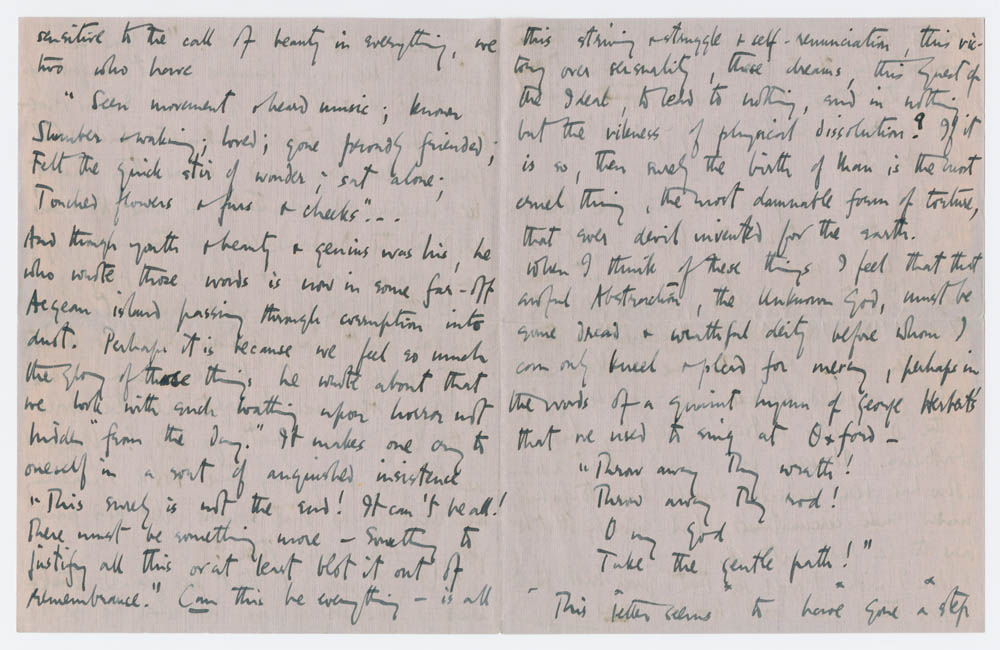 sensitive to the call of beauty in everything, we
two who have
"Seen movement & heard music; known
Slumber & waking; loved; gone proudly friended;
Felt the quick stir of wonder; sat alone;
Touched flowers & furs & cheeks"...
And though youth & beauty & genius was his, he
who wrote those words is now in some far-off
Aegean island passing through corruption into
dust. Perhaps it is because we feel so much
the glory of those things he wrote about that
we look with such loathing upon horror not
hidden "from the day." It makes one cry to
oneself in a sort of anguished insistence
"This surely is not the end! It can't be all!
There must be something more – Something to
justify all this or at least blot it out of
remembrance." Can this be everything – is all
this striving & struggle & self-renunciation, this vic-
tory over sensuality, these dreams, this Quest of
the Ideal, to lead to nothing, and in nothing
but the vileness of physical dissolution? If it
is so, then surely the birth of Man is the most
cruel thing, the most damnable form of torture,
that ever devil invented for the earth.
When I think of these things I feel that that
awful Abstraction, the Unknown God, must be
some dread & wrathful deity before whom I
can only kneel & plead for mercy, perhaps in
the words of a quaint hymn of George Herbert's
that we used to sing at Oxford –
"Throw away Thy wrath!
Throw away Thy rod!
O my God
Take the gentle path!"
This letter seems to have gone a step